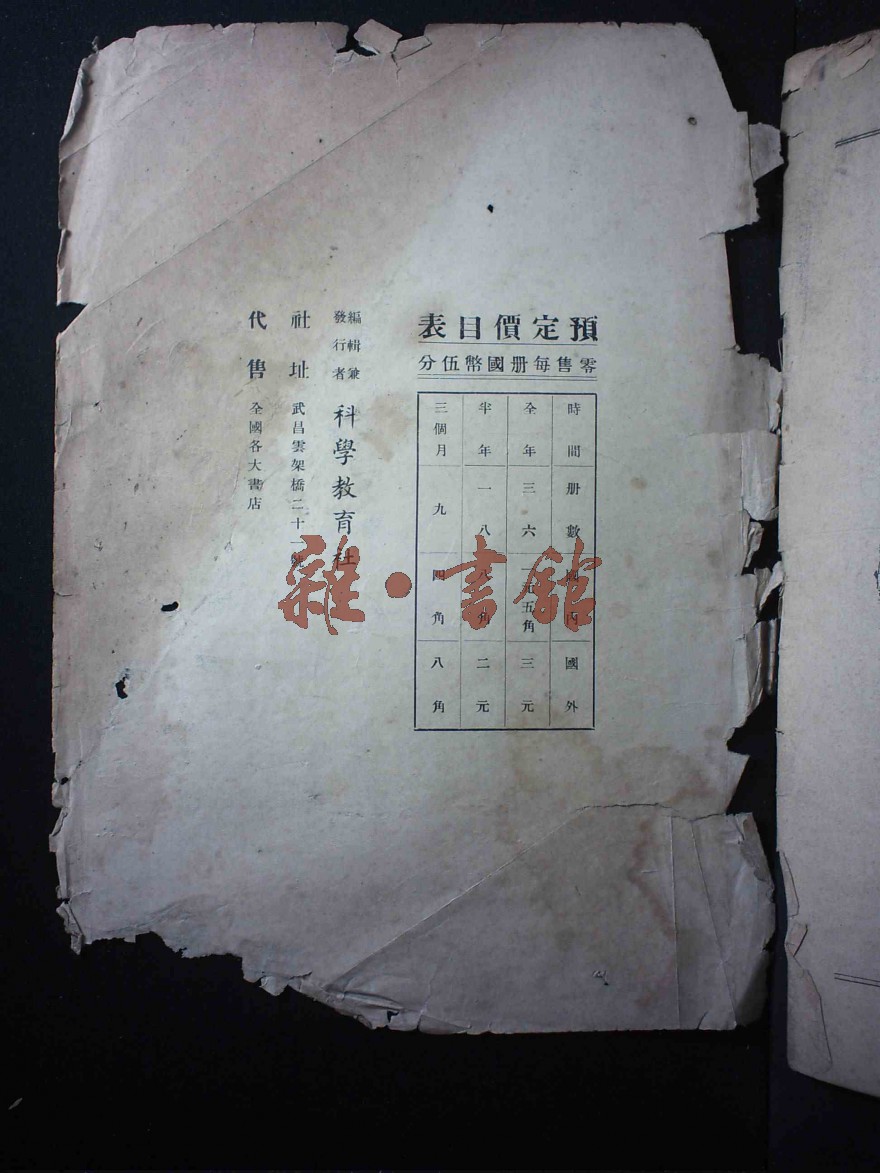 預定價目表
零售每册國幣伍分
時間 册數 國內 國外
全年 三六 一元五角 三元
半年 一八 八角 二元
三個月 九 四角 八角
編輯兼發行者 科學教育社
社址 武昌雲架橋二十一號
代售 全國各大書店
雜·書館